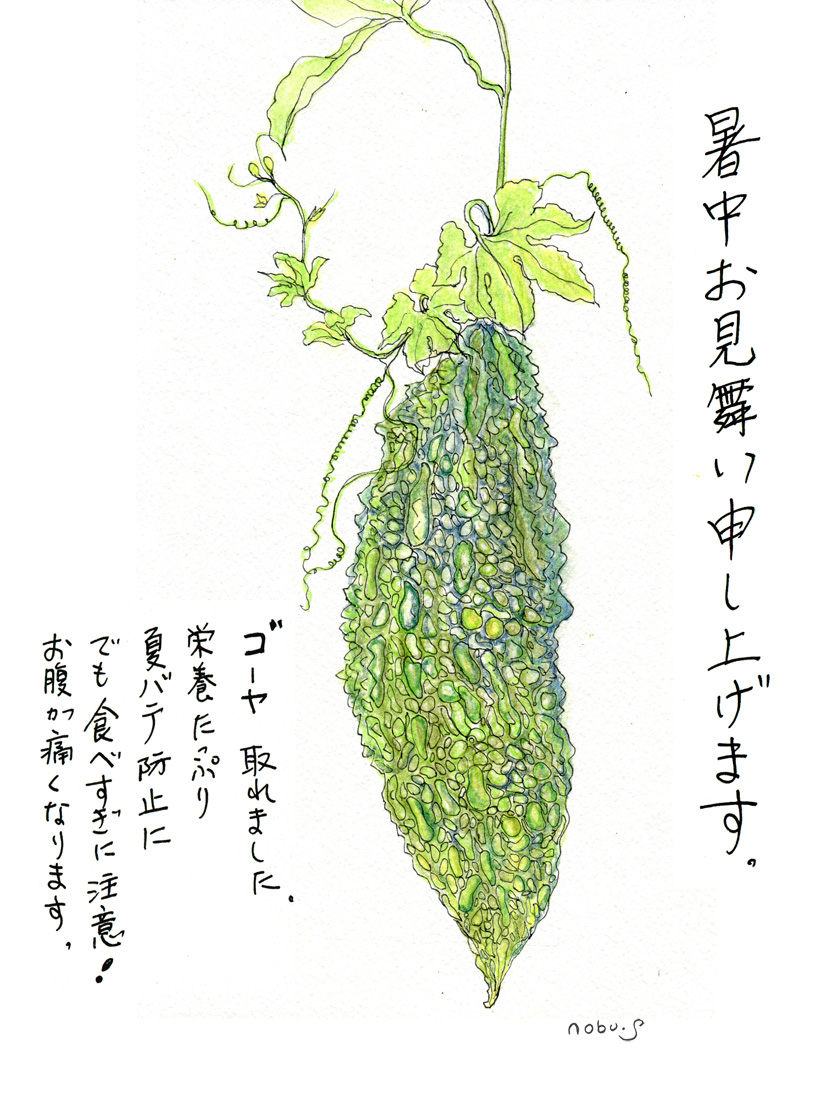 暑中お見舞い申し上げます。
ゴーヤ 取れました。
栄養たっぷり
夏バテ防止に
でも食べすぎに注意!
お腹が痛くなります。
nobu.S